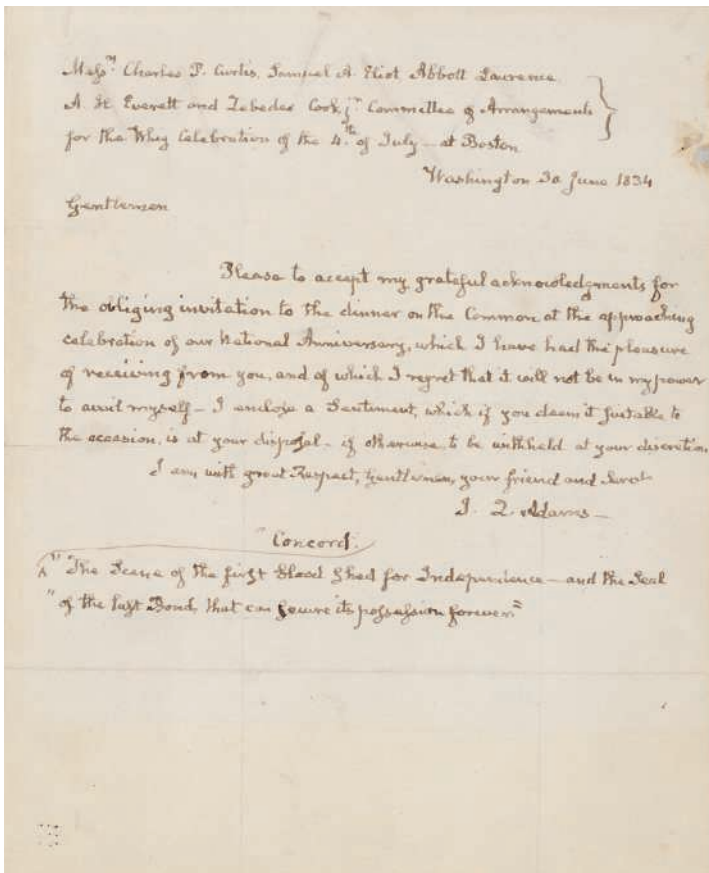 Messrs Charles P. Curtis, Samuel A. Eliot Abbott Lawrence
A. H. Everett and Zebedee Cook jr Committee of Arrangements
for the Whig Celebration of the 4th of July — at Boston
Washington 30 June 1834
Gentlemen
Please to accept my grateful acknowledgments for
the obliging invitation to the dinner on the Common at the approaching
celebration of our National Anniversary, which I have had the pleasure
of receiving from you, and of which I regret that it will not be in my power
to avail myself — I enclose a Sentiment, which if you deem it suitable to
the occasion, is at your disposal — if otherwise, to be withheld at your discretion
I am with great Respect, Gentlemen, your friend and Servt
J. Q. Adams —
"Concord.
"The Scene of the first Blood shed for Independence — and the Seal
"of the last Bond, that can secure its possession forever."